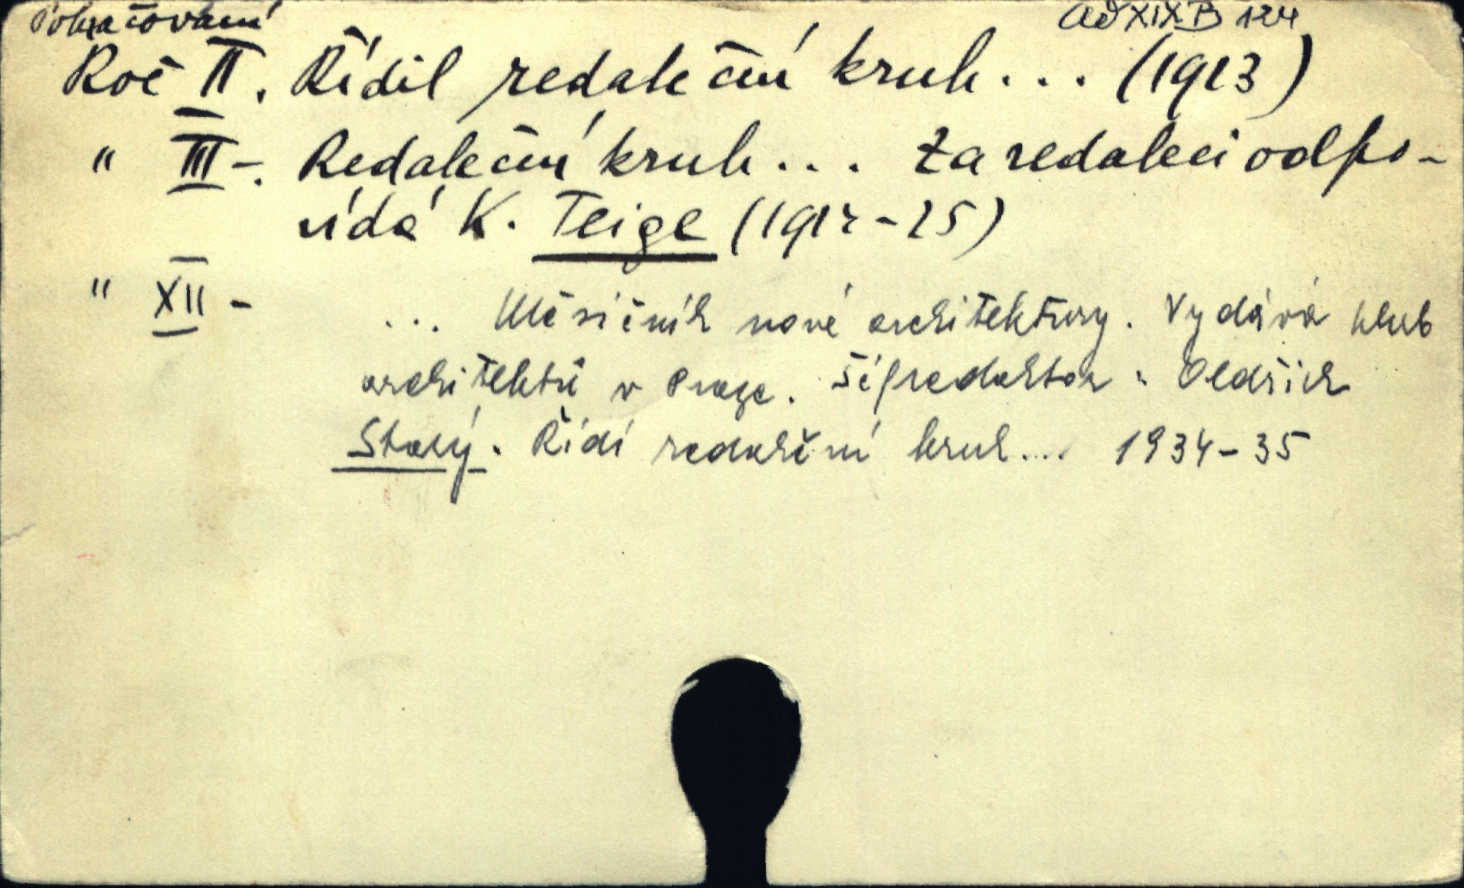 Pokračování
ad XIX B 124
Roč II. Řídil redakční kruh... (1923)
" III-. Redakční kruh... Za redakci odpo-
vídá K. Teige (1924-25)
" XII - ... Měsíčník nové architektury. Vydává klub
architektů v Praze. Šéfredaktor: Oldřich
Starý. Řídí redakční kruh... 1934-35